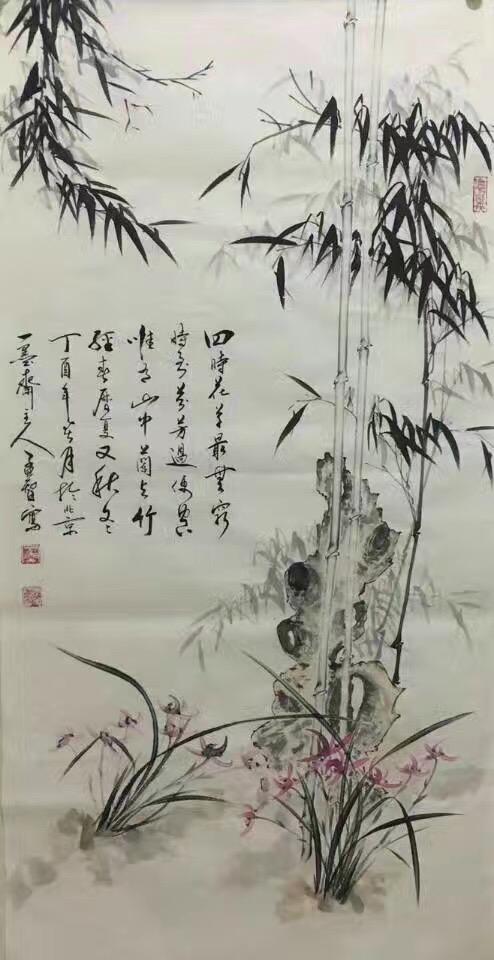 四時花草最無窮
時芬芳過便空
唯有山中蘭与竹
經春曆夏又秋冬
丁酉年月於北京
一墨齋主人寫